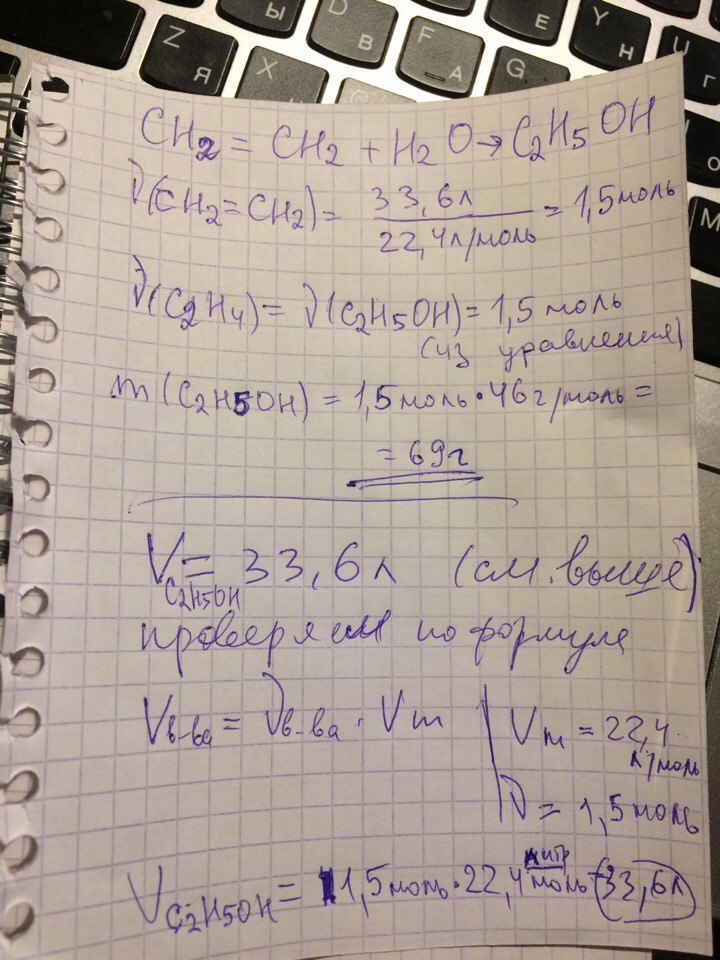 Ы В Е У Н
Z Я X D В F А G Г Ч
CH2 = CH2 + H2O → C2H5OH
ν(CH2=CH2) = 33,6л / 22,4л/моль = 1,5моль
ν(C2H4) = ν(C2H5OH) = 1,5 моль
(из уравнения)
m (C2H5OH) = 1,5моль·46г/моль =
= 69г
V C2H5OH = 33,6л (см. выше)
проверяем по формуле
Vв-ва = νв-ва · Vm
Vm = 22,4 л/моль
ν = 1,5моль
V C2H5OH = 1,5моль·22,4 литр/моль = 33,6л